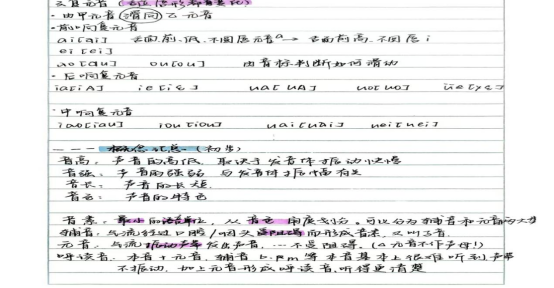 ·由甲元音滑向乙元音
·前响复元音
ai[ai] 舌面前、低、不圆唇元音a→舌面前高、不圆唇i
ei[ei]
ao[ɑu] ou[ou] 由音标判断如何滑动
·后响复元音
ia[iA] ie[iɛ] ua[uA] uo[uo] üe[yɛ]
·中响复元音
iao[iɑu] iou[iou] uai[uai] uei[uei]
概念汇总(初步)
音高:声音的高低,取决于发音体振动快慢
音强:声音的强弱 与发音体振幅有关
音长:声音的长短
音色:声音的特色
音素:最小的语音单位,从音色角度划分。可以分为辅音和元音两大类
辅音:气流经过口腔/咽头受阻碍而形成音素,又叫子音
元音:气流振动声带发出声音,…不受阻碍。(公元音不作声母!)
呼读音:本音+元音,辅音b.p.m等本音基本上很难听到声带
不振动,加上元音形成呼读音,听得更清楚